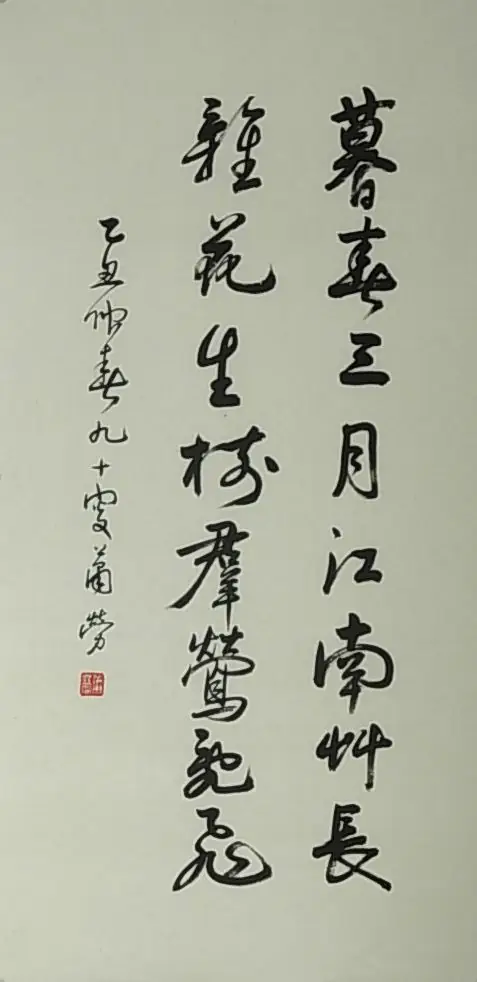 暮春三月江南艸長
雜花生樹群鶯亂飛
乙丑仲春九十叟蕭勞